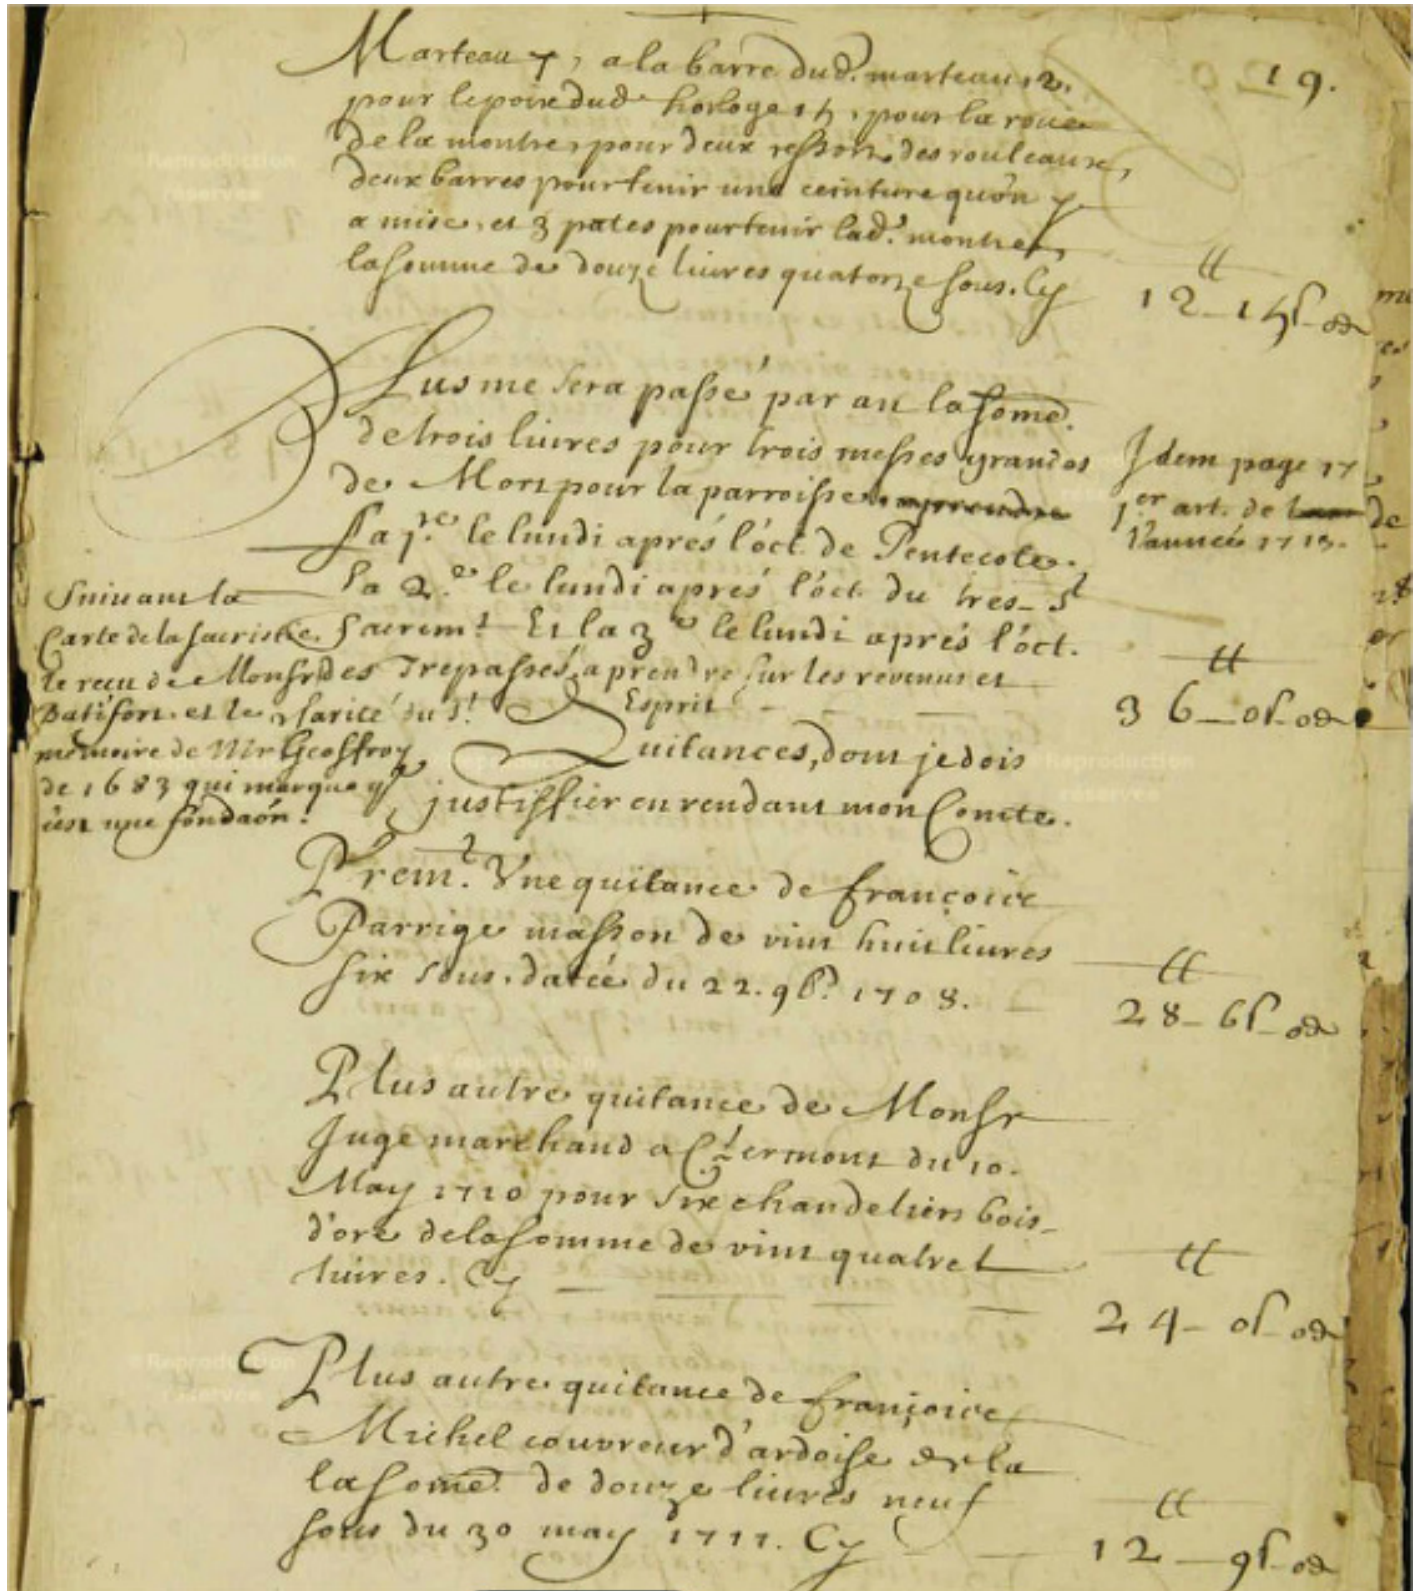 19.
Marteau 7, a la barre dud. marteau 12,
pour le poixe dud. horloge 15, pour la roue
de la montre, pour deux ressors, des rouleaux,
deux barres pour tenir une ceinture qu'on y
a mise, et 3 pates pour tenir lad. montre,
la somme de douze livres quatorze sous. Cy
tt
12 - 14s - 0d
Plus me sera passé par an la some.
de trois livres pour trois messes grandes
de Mors pour la parroisse
La 1.re le lundi aprés l'oct. de Pentecote.
la 2.e le lundi aprés l'oct. du tres - St
Sacrem.t Et la 3e le lundi aprés l'oct.
des Trepassés, a prendre sur les revenus et
charité du St. Esprit
Idem page 17
1.er art. de
l'année 1713.
tt
36 - 0s - 0d
Suivant la
Carte de la sacristie
le reçu de Monsr
Batifort et le
memoire de Mr Geoffroy
de 1683 qui marque q
c'est une fondaön.
Quitances, dont je dois
justiffier en rendant mon Comte.
Prem.t Une quitance de françois
Parrige masson de vint huit livres
six sous. datée du 22. 9b. 1708.
tt
28 - 6s - 0d
Plus autre quitance de Monsr
Juge marchand a Clermont du 10.
May 1710 pour six chandeliers bois -
d'oré de la somme de vint quatre
livres. Cy
tt
24 - 0s - 0d
Plus autre quitance de françois
Michel couvreur d'ardoise de la
la some. de douze livres neuf
sous du 30 may 1711. Cy
tt
12 - 9s - 0d